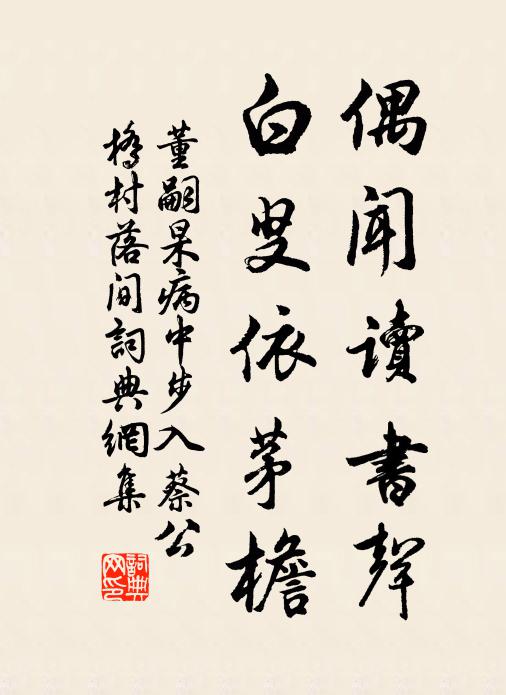 偶闻读書聲
白叟依茅檐
董嗣杲病中步入蔡公
橋村落间詞典網集
詞典网印